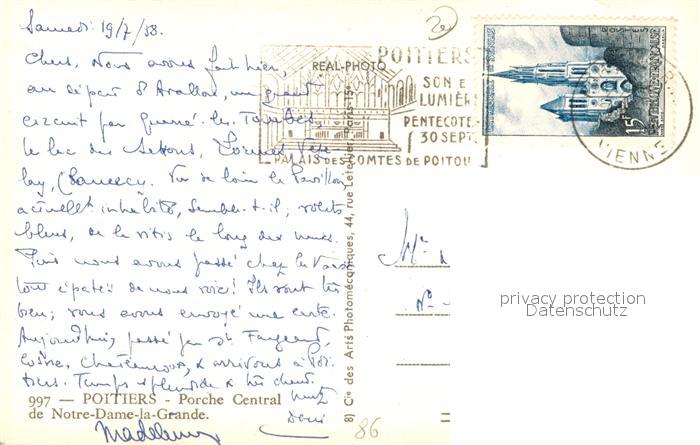 Samedi 19/7/58.
Chers, Nous avons fait hier,
au départ d'Avallon, un grand
circuit par Quarré-les-Tombes,
le lac des Settons, Lormes, Véze-
lay,
Vu de loin le Pavillon
actuellt inhabité, semble-t-il; volets
bleus, le long des murs.
Puis nous avons passé chez les
tout épatés de nous voir! Ils vont très
bien; vous avons envoyé une carte.
Aujourd'hui, passé par St Fargeau,
Cosne, Châteauroux, & arrivons à Poi-
tiers. Temps splendide & très chaud.
Madeleine
997 — POITIERS - Porche Central
de Notre-Dame-la-Grande.
REAL-PHOTO
8) Cie des Arts Photomécaniques, 44, rue Letellier, Paris-15e
POITIERS
SON E
LUMIÈR
PENTECOTE-
30 SEPT.
PALAIS DES COMTES DE POITOU
15F
VIENNE
M
No
privacy protection
Datenschutz
86